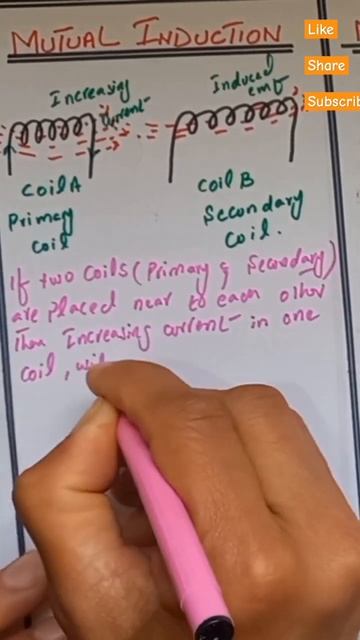 MUTUAL INDUCTION
Like
Share
Subscrib
Increasing
current
Induced
emf
Coil A
Primary
Coil
Coil B
Secondary
Coil.
If two coils (Primary & Secondary)
are placed near to each other
Then Increasing current in one
coil, wil